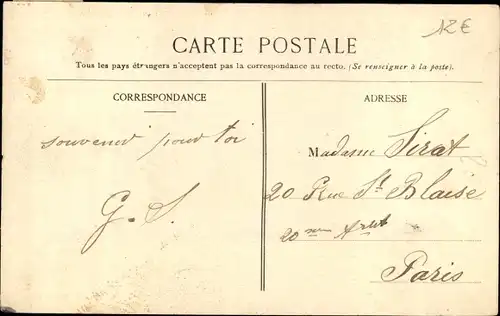 12€
CARTE POSTALE
Tous les pays étrangers n'acceptent pas la correspondance au recto. (Se renseigner à la poste).
CORRESPONDANCE
souvenir pour toi
G. S.
ADRESSE
Madame Sirat
20 Rue St Blaise
20me Ardt
Paris